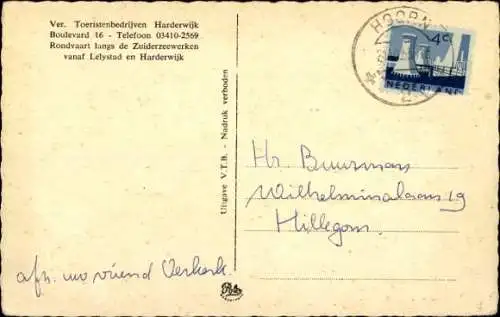 Ver. Toeristenbedrijven Harderwijk
Boulevard 16 - Telefoon 03410-2569
Rondvaart langs de Zuiderzeewerken
vanaf Lelystad en Harderwijk
Uitgave V.T.B. - Nadruk verboden
HOORN
4c
NEDERLAND
Hr Buurman
Wilhelminalaan 19
Hillegom.
afz. uw vriend Verkerk.